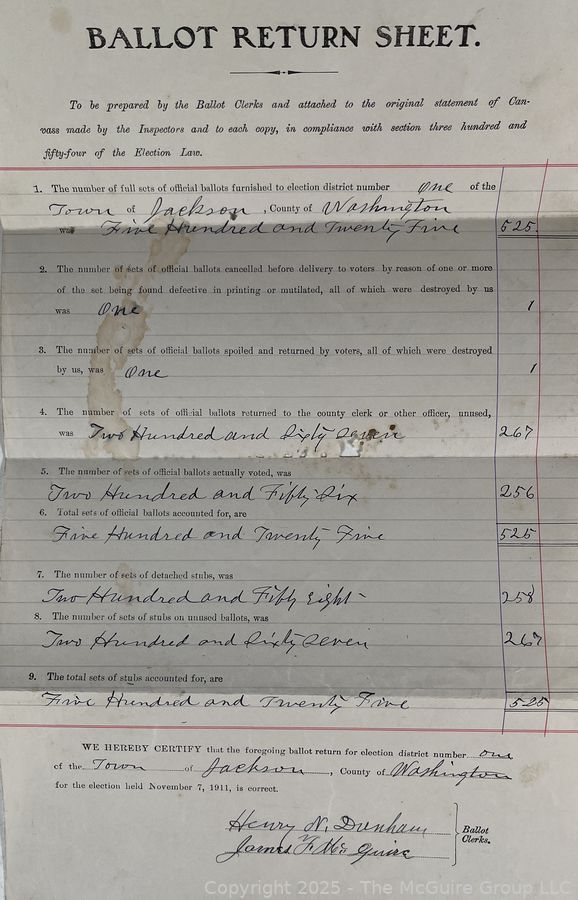 BALLOT RETURN SHEET.
To be prepared by the Ballot Clerks and attached to the original statement of Can-
vass made by the Inspectors and to each copy, in compliance with section three hundred and
fifty-four of the Election Law.
1. The number of full sets of official ballots furnished to election district number One of the
Town of Jackson, County of Washington
was Five Hundred and Twenty Five 525.
2. The number of sets of official ballots cancelled before delivery to voters by reason of one or more
of the set being found defective in printing or mutilated, all of which were destroyed by us
was One 1
3. The number of sets of official ballots spoiled and returned by voters, all of which were destroyed
by us, was One 1
4. The number of sets of official ballots returned to the county clerk or other officer, unused,
was Two Hundred and Sixty Seven 267
5. The number of sets of official ballots actually voted, was
Two Hundred and Fifty Six 256
6. Total sets of official ballots accounted for, are
Five Hundred and Twenty Five 525
7. The number of sets of detached stubs, was
Two Hundred and Fifty Eight 258
8. The number of sets of stubs on unused ballots, was
Two Hundred and Sixty Seven 267
9. The total sets of stubs accounted for, are
Five Hundred and Twenty Five 525
WE HEREBY CERTIFY that the foregoing ballot return for election district number one
of the Town of Jackson, County of Washington
for the election held November 7, 1911, is correct.
Henry N. Dunham
James F. McGuire
Ballot
Clerks.
Copyright 2025 - The McGuire Group LLC